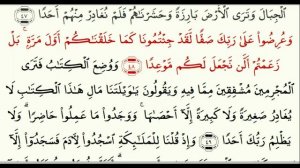 ٱلْجِبَالَ وَتَرَى ٱلْأَرْضَ بَارِزَةً وَحَشَرْنَٰهُمْ فَلَمْ نُغَادِرْ مِنْهُمْ أَحَدًا ٤٧
وَعُرِضُوا۟ عَلَىٰ رَبِّكَ صَفًّا لَّقَدْ جِئْتُمُونَا كَمَا خَلَقْنَٰكُمْ أَوَّلَ مَرَّةٍۭ بَلْ
زَعَمْتُمْ أَلَّن نَّجْعَلَ لَكُم مَّوْعِدًا ٤٨ وَوُضِعَ ٱلْكِتَٰبُ فَتَرَى
ٱلْمُجْرِمِينَ مُشْفِقِينَ مِمَّا فِيهِ وَيَقُولُونَ يَٰوَيْلَتَنَا مَالِ هَٰذَا ٱلْكِتَٰبِ لَا
يُغَادِرُ صَغِيرَةً وَلَا كَبِيرَةً إِلَّآ أَحْصَىٰهَا وَوَجَدُوا۟ مَا عَمِلُوا۟ حَاضِرًا وَلَا
يَظْلِمُ رَبُّكَ أَحَدًا ٤٩ وَإِذْ قُلْنَا لِلْمَلَٰٓئِكَةِ ٱسْجُدُوا۟ لِءَادَمَ فَسَجَدُوٓا۟ إِلَّآ